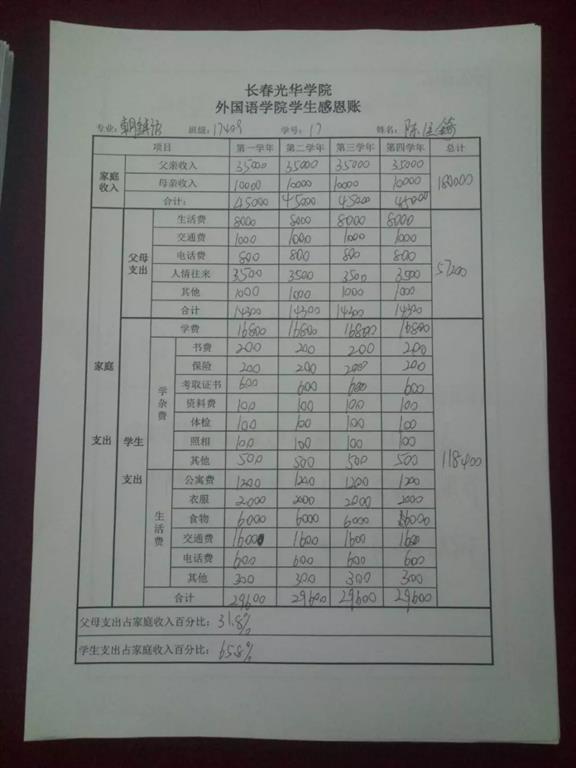 长春光华学院
外国语学院学生感恩账
专业: 朝鲜语 班级: 17409 学号: 17 姓名: 陈
项目 第一学年 第二学年 第三学年 第四学年 总计
家庭收入 父亲收入 35000 35000 35000 35000 180000
母亲收入 10000 10000 10000 10000
合计: 45000 45000 45000 45000
家庭支出 父母支出 生活费 8000 8000 8000 8000 57200
交通费 1000 1000 1000 1000
电话费 800 800 800 800
人情往来 3500 3500 3500 3500
其他 1000 1000 1000 1000
合计 14300 14300 14300 14300
学生支出 学费 16800 16800 16800 16800 118400
学杂费 书费 200 200 200 200
保险 200 200 200 200
考取证书 600 600 600 600
资料费 100 100 100 100
体检 100 100 100 100
照相 100 100 100 100
其他 500 500 500 500
生活费 公寓费 1200 1200 1200 1200
衣服 2000 2000 2000 2000
食物 6000 6000 6000 6000
交通费 1600 1600 1600 1600
电话费 600 600 600 600
其他 300 300 300 300
合计 29600 29600 29600 29600
父母支出占家庭收入百分比: 31.8%
学生支出占家庭收入百分比: 65.8%